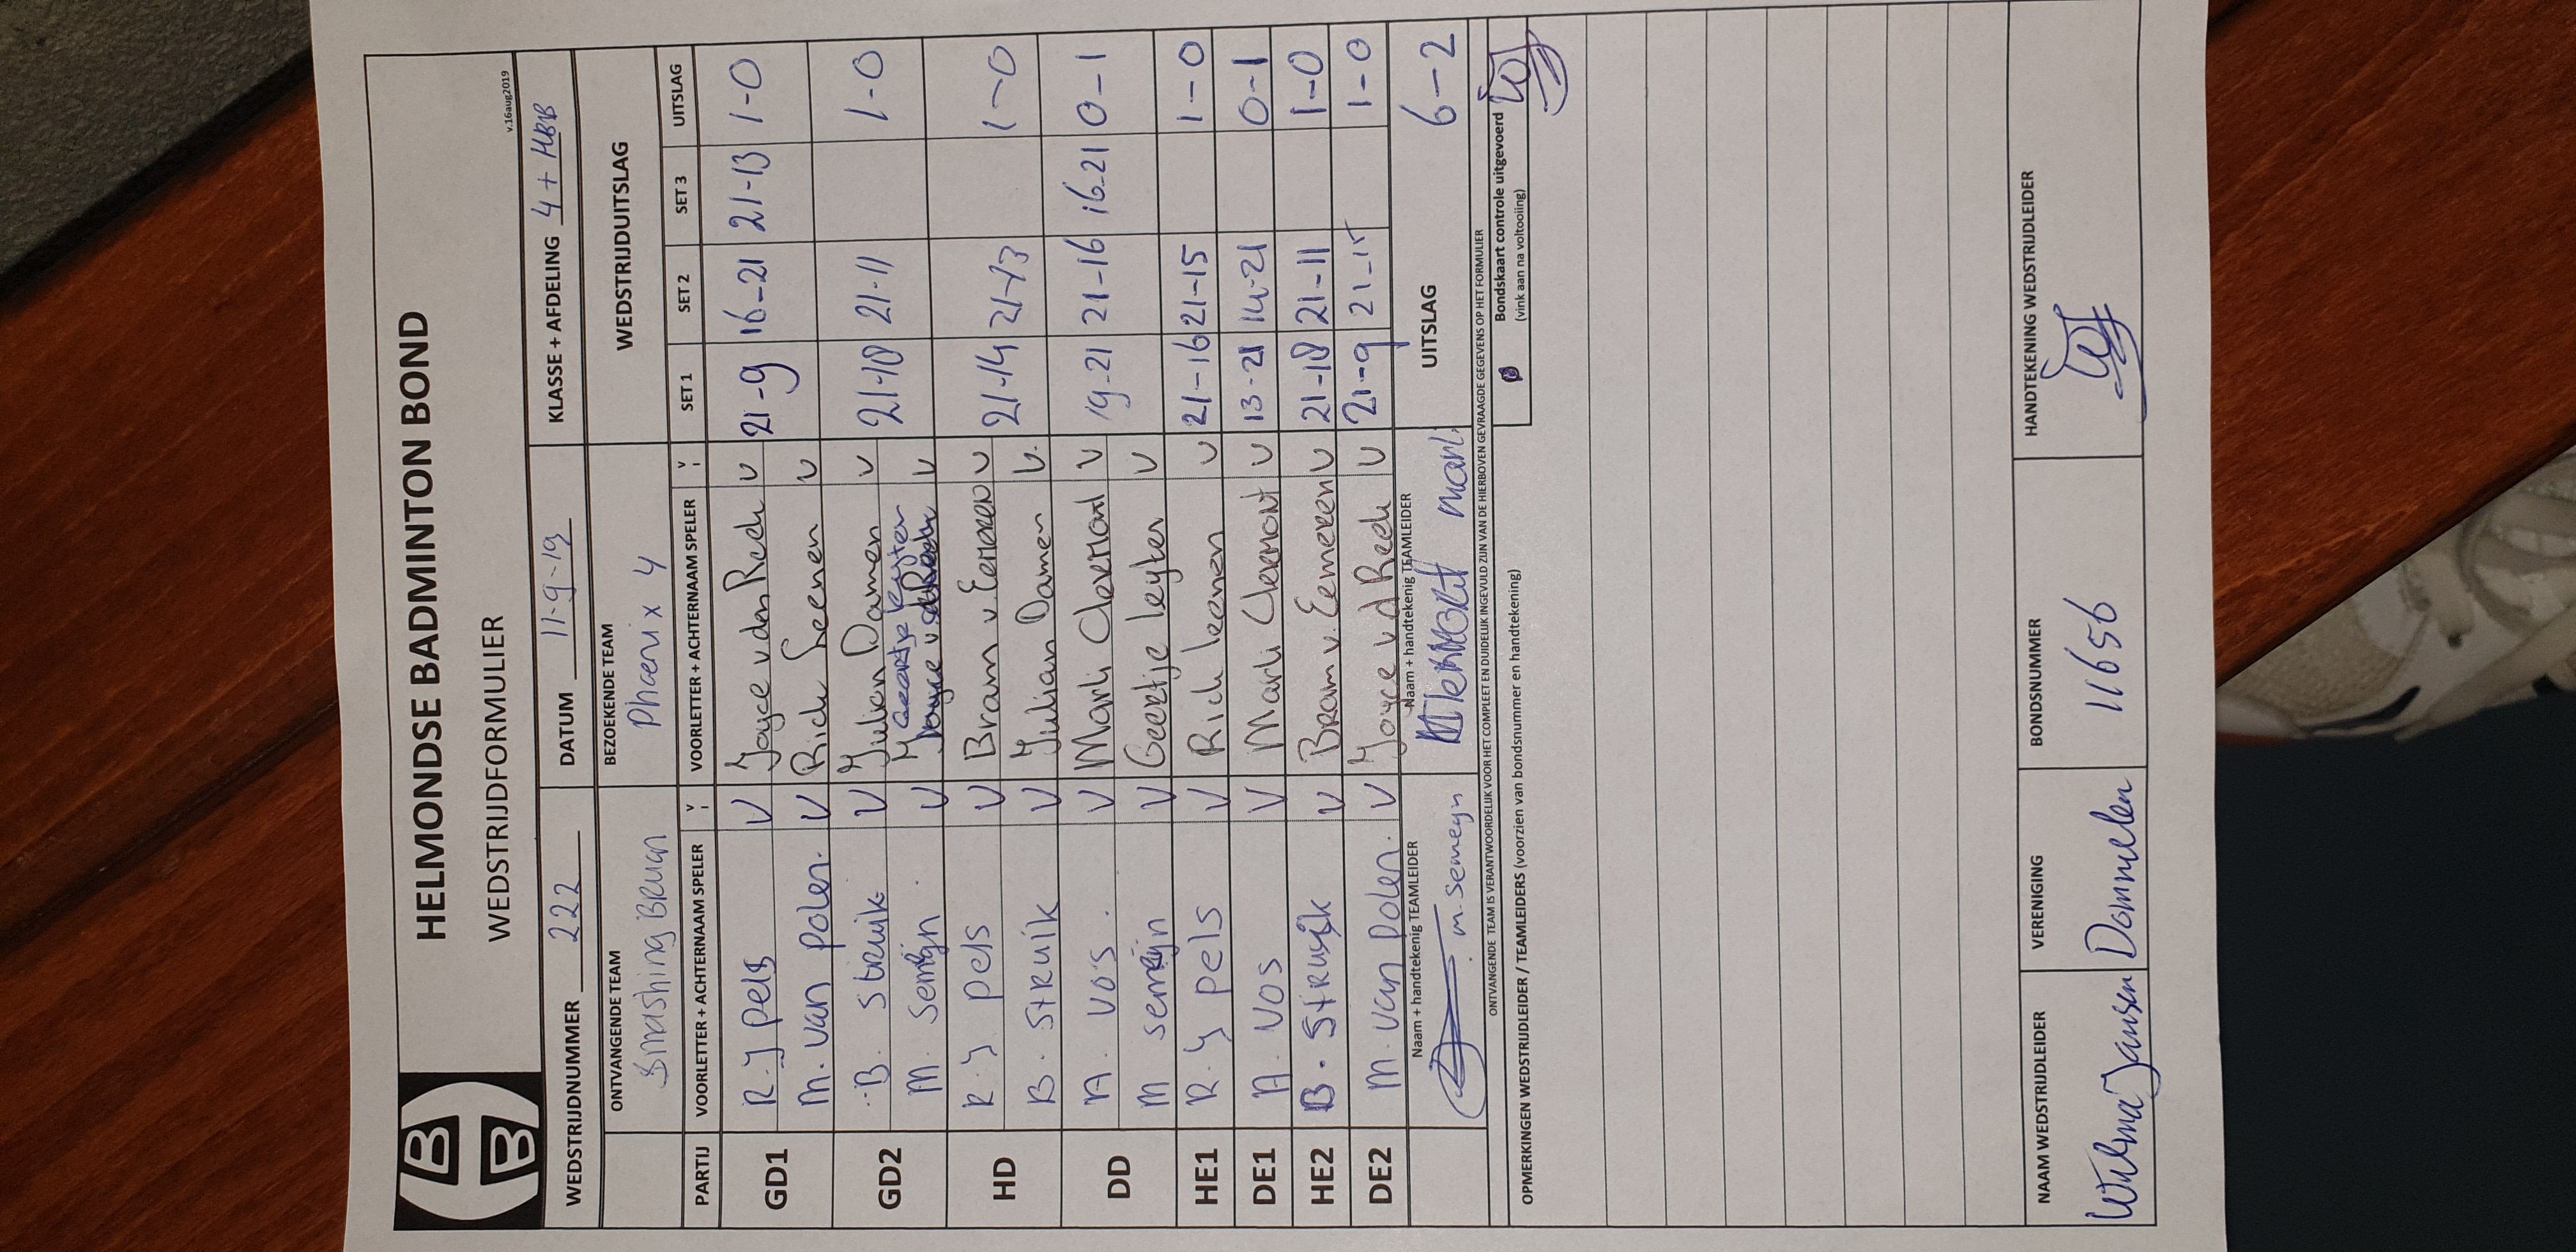 HELMONDSE BADMINTON BOND
WEDSTRIJDFORMULIER
v.16aug2019
WEDSTRIJDNUMMER 222 DATUM 11-9-19 KLASSE + AFDELING 4 + HBB
ONTVANGENDE TEAM BEZOEKENDE TEAM WEDSTRIJDUITSLAG
Smashing Bruan Phoenix 4
PARTIJ VOORLETTER + ACHTERNAAM SPELER V VOORLETTER + ACHTERNAAM SPELER V SET 1 SET 2 SET 3 UITSLAG
GD1 R.J pels V Joyce v den Reek V 21-9 16-21 21-13 1-0
M. van polen. V Rick Leenen V
GD2 B. Struik V Julian Damen V 21-10 21-11 1-0
M. Semijn. V Geertje Leyten V
HD R J pels V Bram v. Eemeren V 21-14 21-13 1-0
B. Struik V Julian Damen V.
DD A. Vos. V Marli Clermont V 19-21 21-16 16-21 0-1
M Semijn V Geertje leyten V
HE1 R.J pels V Rick leenen V 21-16 21-15 1-0
DE1 A. Vos V Marli Clermont V 13-21 14-21 0-1
HE2 B. Struik V Bram v. Eemeren V 21-10 21-11 1-0
DE2 M. van polen. V Joyce v d Reek V 21-9 21-15 1-0
Naam + handtekenig TEAMLEIDER Naam + handtekenig TEAMLEIDER UITSLAG 6-2
m. Semeyn Clermont Marli
ONTVANGENDE TEAM IS VERANTWOORDELIJK VOOR HET COMPLEET EN DUIDELIJK INGEVULD ZIJN VAN DE HIERBOVEN GEVRAAGDE GEGEVENS OP HET FORMULIER
Bondskaart controle uitgevoerd
(vink aan na voltooiing)
OPMERKINGEN WEDSTRIJDLEIDER / TEAMLEIDERS (voorzien van bondsnummer en handtekening)
NAAM WEDSTRIJDLEIDER VERENIGING BONDSNUMMER HANDTEKENING WEDSTRIJDLEIDER
Wilma Jansen Dommelen 11656